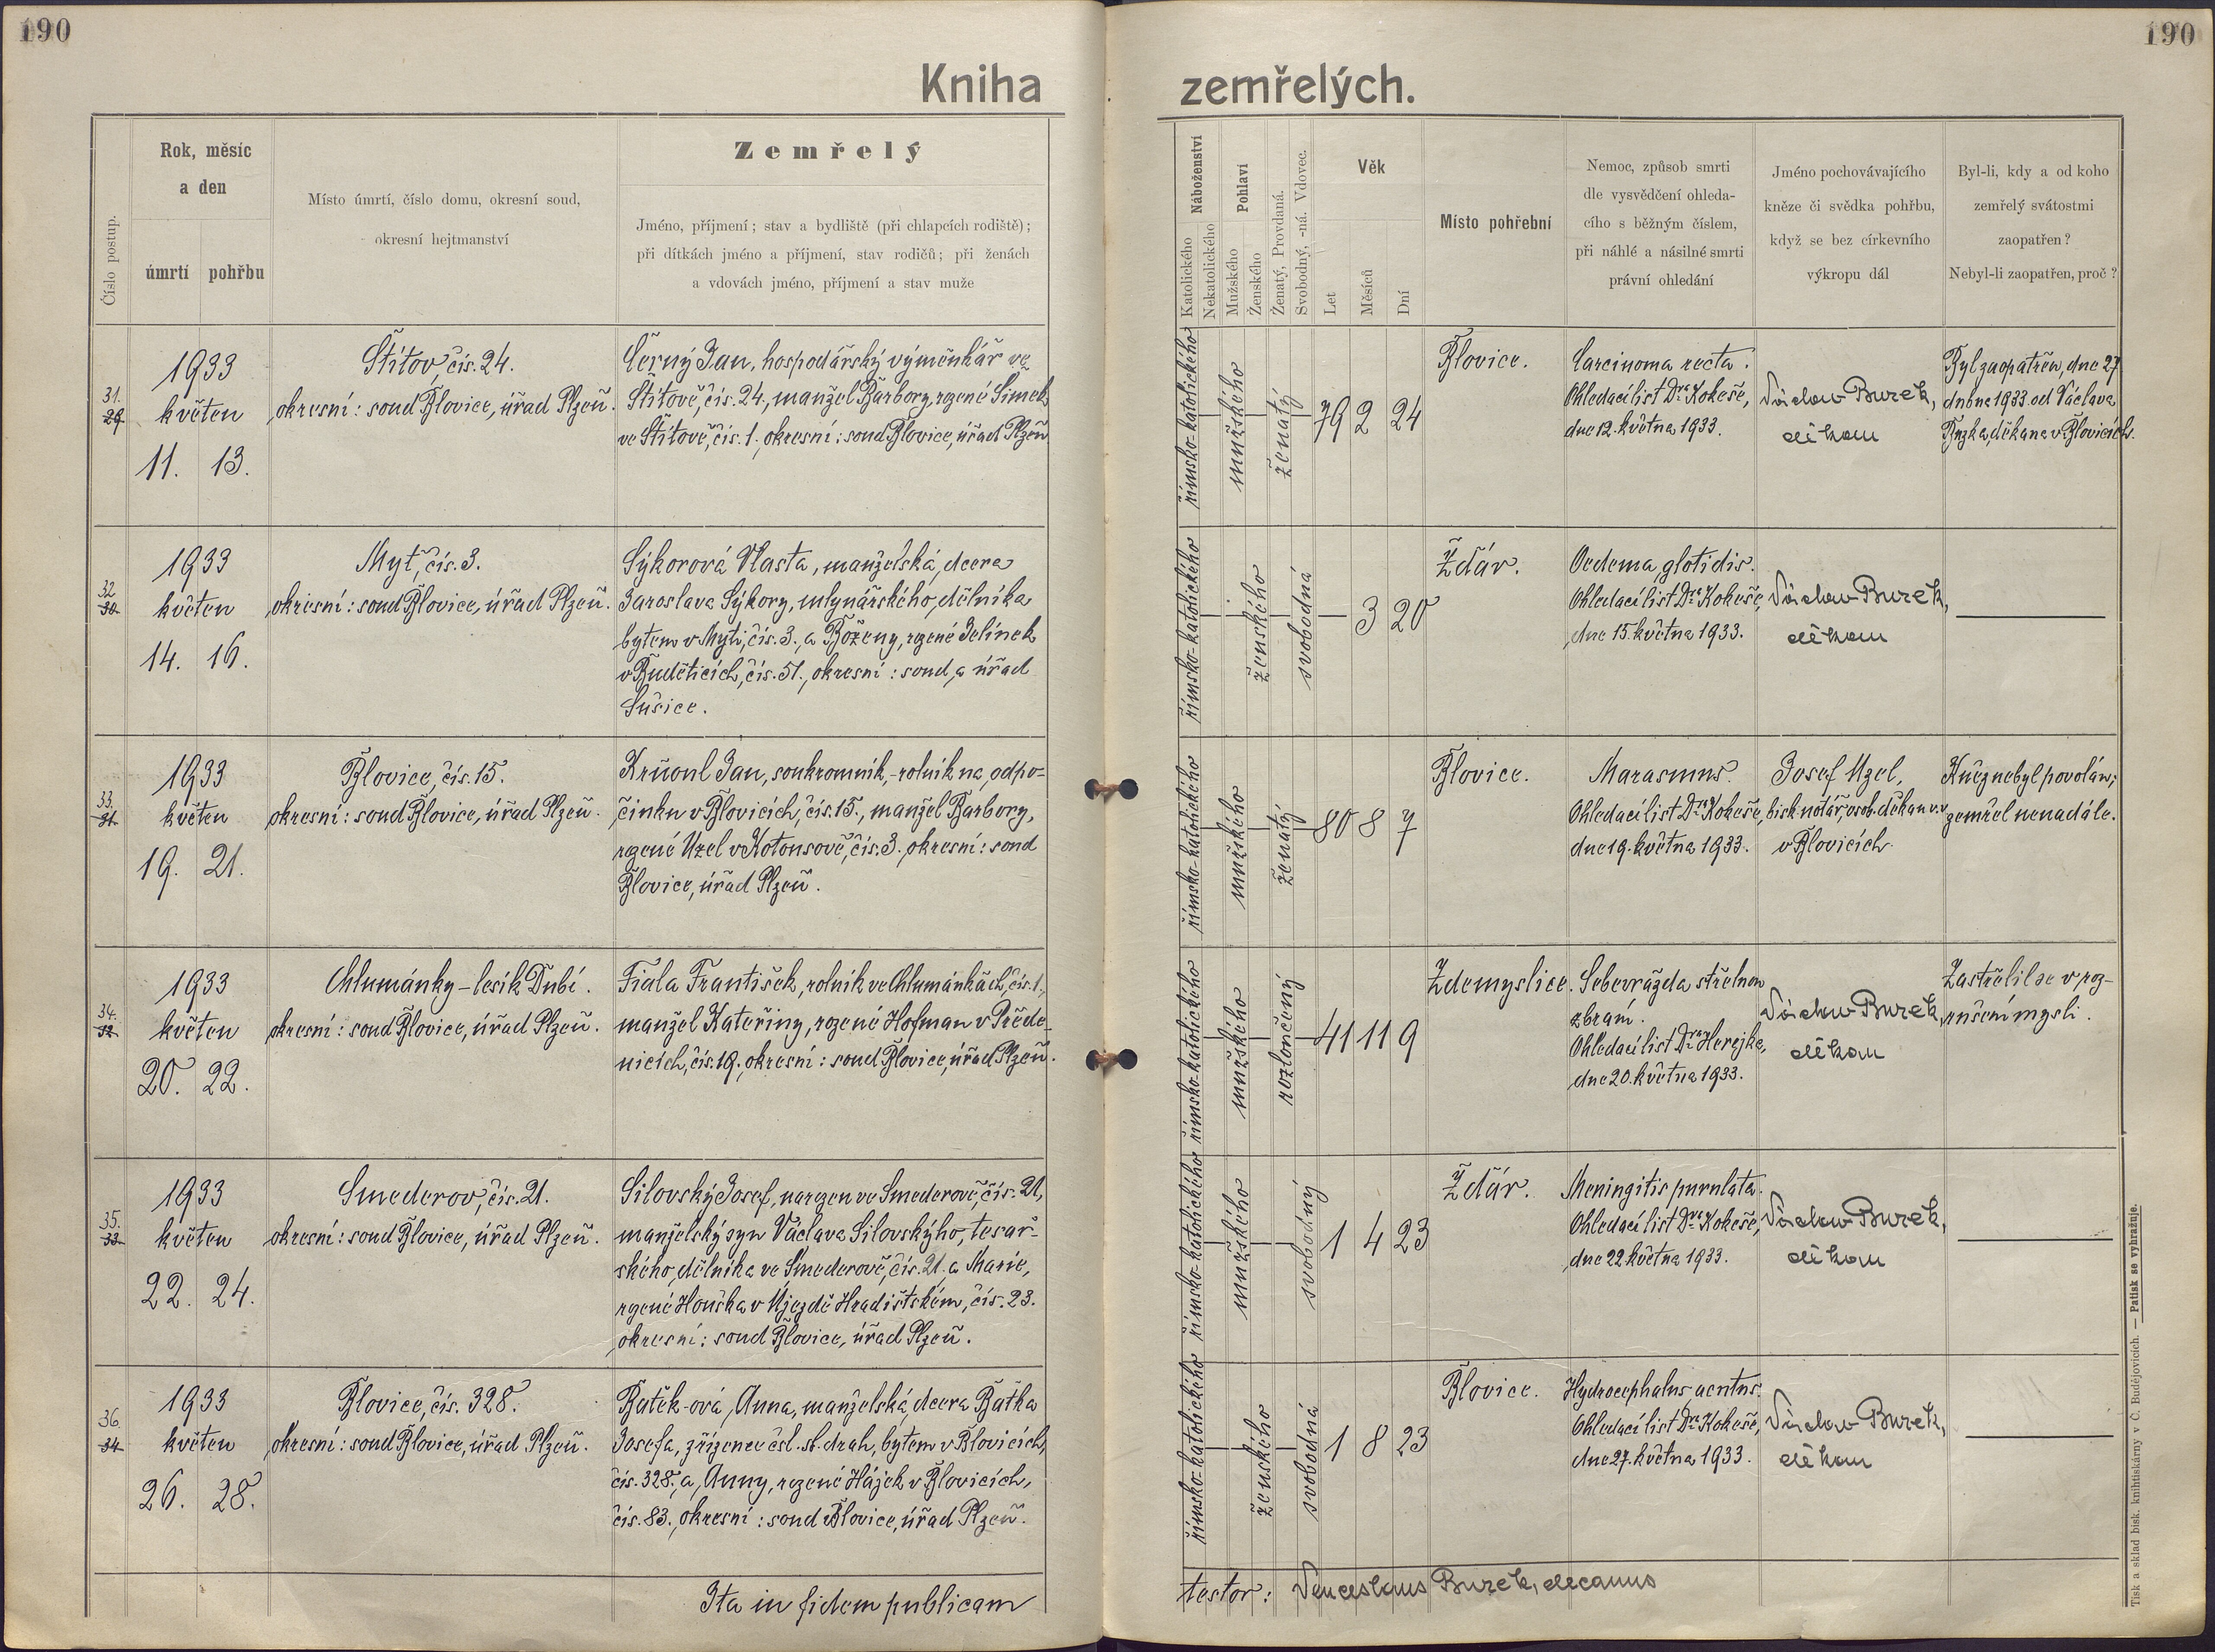 190
190
Kniha zemřelých.
Číslo postup.
Rok, měsíc
a den
úmrtí
pohřbu
Místo úmrtí, číslo domu, okresní soud,
okresní hejtmanství
Zemřelý
Jméno, příjmení; stav a bydliště (při chlapcích rodiště);
při dítkách jméno a příjmení, stav rodičů; při ženách
a vdovách jméno, příjmení a stav muže
Náboženství
Katolického
Nekatolického
Pohlaví
Mužského
Ženského
Ženatý, Provdaná.
Svobodný, -ná. Vdovec.
Věk
Let
Měsíců
Dní
Místo pohřební
Nemoc, způsob smrti
dle vysvědčení ohleda-
cího s běžným číslem,
při náhlé a násilné smrti
právní ohledání
Jméno pochovávajícího
kněze či svědka pohřbu,
když se bez církevního
výkropu dál
Byl-li, kdy a od koho
zemřelý svátostmi
zaopatřen?
Nebyl-li zaopatřen, proč?
31.
29.
1933
květen
11. 13.
Štítov, čís. 24.
okresní: soud Blovice, úřad Plzeň.
Černý Jan, hospodářský výměnkář ve
Štítově, čís. 24, manžel Barbory, rozené Šimek
ve Štítově, čís. 1. okresní: soud Blovice, úřad Plzeň
římsko-katolického
mužského
ženatý
79 2 24
Blovice.
Carcinoma recta.
Ohledací list Dra Kokeše,
dne 12. května 1933.
Václav Burek,
děkan
Byl zaopatřen dne 27.
dubna 1933 od Václava
děkana v Blovicích.
32
30.
1933
květen
14. 16.
Myť, čís. 3.
okresní: soud Blovice, úřad Plzeň.
Sýkorová Vlasta, manželská dcera
Jaroslava Sýkory, mlynářského dělníka
bytem v Myti, čís. 3., a Boženy, rozené Jelínek
v Buděticích, čís. 51., okresní: soud a úřad
Sušice.
římsko-katolického
ženského
svobodná
3 20
Ždár.
Oedema glotidis.
Ohledací list Dra Kokeše,
dne 15. května 1933.
Václav Burek,
děkan
33.
31.
1933
květen
19. 21.
Blovice, čís. 15.
okresní: soud Blovice, úřad Plzeň.
Jan, soukromník,-rolník na odpo-
činku v Blovicích, čís. 15., manžel Barbory,
rozené Uzel v Kotousově, čís. 3. okresní: soud
Blovice, úřad Plzeň.
římsko-katolického
mužského
ženatý
80 8 7
Blovice.
Marasmus.
Ohledací list Dra Kokeše,
dne 19. května 1933.
Josef Uzel,
bisk. notář, osob. děkan v.v.
v Blovicích.
Kněz nebyl povolán;
zemřel nenadále.
34.
32.
1933
květen
20. 22.
Chlumánky - lesík Dubí.
okresní: soud Blovice, úřad Plzeň.
Fiala František, rolník ve Chlumánkách, čís. 1.,
manžel Kateřiny, rozené Hofman v Přede-
nicích, čís. 19., okresní: soud Blovice, úřad Plzeň.
římsko-katolického
mužského
rozloučený
41 11 9
Zdemyslice.
Sebevražda střelnou
zbraní.
Ohledací list Dra Herejka,
dne 20. května 1933.
Václav Burek,
děkan
Zastřelil se v roz-
rušení mysli.
35.
33.
1933
květen
22. 24.
Smederov, čís. 21.
okresní: soud Blovice, úřad Plzeň.
Silovský Josef, narozen ve Smederově, čís. 21,
manželský syn Václava Silovského, tesař-
ského dělníka ve Smederově, čís. 21. a Marie,
rozené Houška v Újezdě Hradišťském, čís. 23.
okresní: soud Blovice, úřad Plzeň.
římsko-katolického
mužského
svobodný
1 4 23
Ždár.
Meningitis purulata.
Ohledací list Dra Kokeše,
dne 22. května 1933.
Václav Burek,
děkan
36.
34.
1933
květen
26. 28.
Blovice, čís. 328.
okresní: soud Blovice, úřad Plzeň.
Batěk-ová, Anna, manželská dcera Baťka
Josefa, zřízence čsl. st. drah, bytem v Blovicích,
čís. 328., a Anny, rozené Hájek v Blovicích,
čís. 83., okresní: soud Blovice, úřad Plzeň.
římsko-katolického
ženského
svobodná
1 8 23
Blovice.
Hydrocephalus acutus.
Ohledací list Dra Kokeše,
dne 27. května 1933.
Václav Burek,
děkan
Ita in fidem publicam
testor: Venceslaus Burek, decanus
Tisk a sklad bisk. knihtiskárny v Č. Budějovicích. — Patisk se vyhražuje.